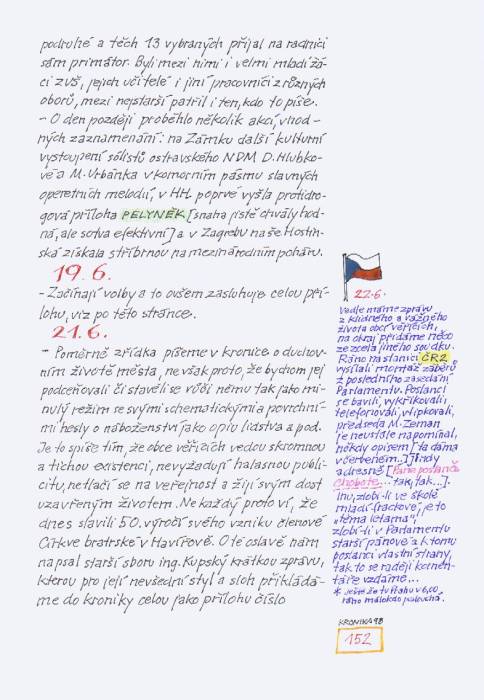 podruhé a těch 13 vybraných přijal na radnici
sám primátor. Byli mezi nimi i velmi mladí žá-
ci ZUŠ, jejich učitelé i jiní pracovníci z různých
oborů, mezi nejstarší patřil i ten, kdo to píše.
- O den později proběhlo několik akcí, vhod-
ných zaznamenání: na Zámku další kulturní
vystoupení sólistů ostravského NDM D. Hlubko-
vé a M. Urbánka v komorním pásmu slavných
operetních melodií, v HH. poprvé vyšla protidro-
gová příloha PELYNĚK [snaha jistě chvály hod-
ná, ale sotva efektivní] a v Zagrebu naše Hostin-
ská získala stříbrnou na mezinárodním poháru.
19.6.
- Začínají volby a to ovšem zasluhuje celou pří-
lohu, viz po této stránce.
21.6.
- Poměrně zřídka píšeme v kronice o duchov-
ním životě města, ne však proto, že bychom jej
podceňovali či stavěli se vůči němu tak jako mi-
nulý režim se svými schematickými a povrchní-
mi hesly o náboženství jako opiu lidstva a pod.
Je to spíše tím, že obce věřících vedou skromnou
a tichou existenci, nevyžadují halasnou publi-
citu, netlačí se na veřejnost a žijí svým dost
uzavřeným životem. Ne každý proto ví, že
dnes slavili 50. výročí svého vzniku členové
Církve bratrské v Havířově. O té oslavě nám
napsal starší sboru ing. Kupský krátkou zprávu,
kterou pro její nevšední styl a sloh přikládá-
me do kroniky celou jako přílohu číslo
22.6.
Vedle máme zprávu
z klidného a vážného
života obcí věřících,
na okraj přidáme něco
ze zcela jiného soudku.
Ráno na stanici ČR2
vysílali montáž záběrů
z posledního zasedání
Parlamentu. Poslanci
se bavili, vykřikovali,
telefonovali, vtipkovali,
předseda M. Zeman
je neustále napomínal,
někdy opisem [ta dáma
v červeném...] jindy
adresně [Pane poslanče
Chobote... tak, tak...].
Inu, zlobí-li ve škole
mladí frackové, je to
"téma letárna",
zlobí-li v Parlamentu
starší pánové a k tomu
poslanci vlastní strany,
tak to se raději komen-
táře vzdáme...
* Ještě že tu Prahu v 6,00
ráno málokdo poslouchá.
KRONIKA 98
152